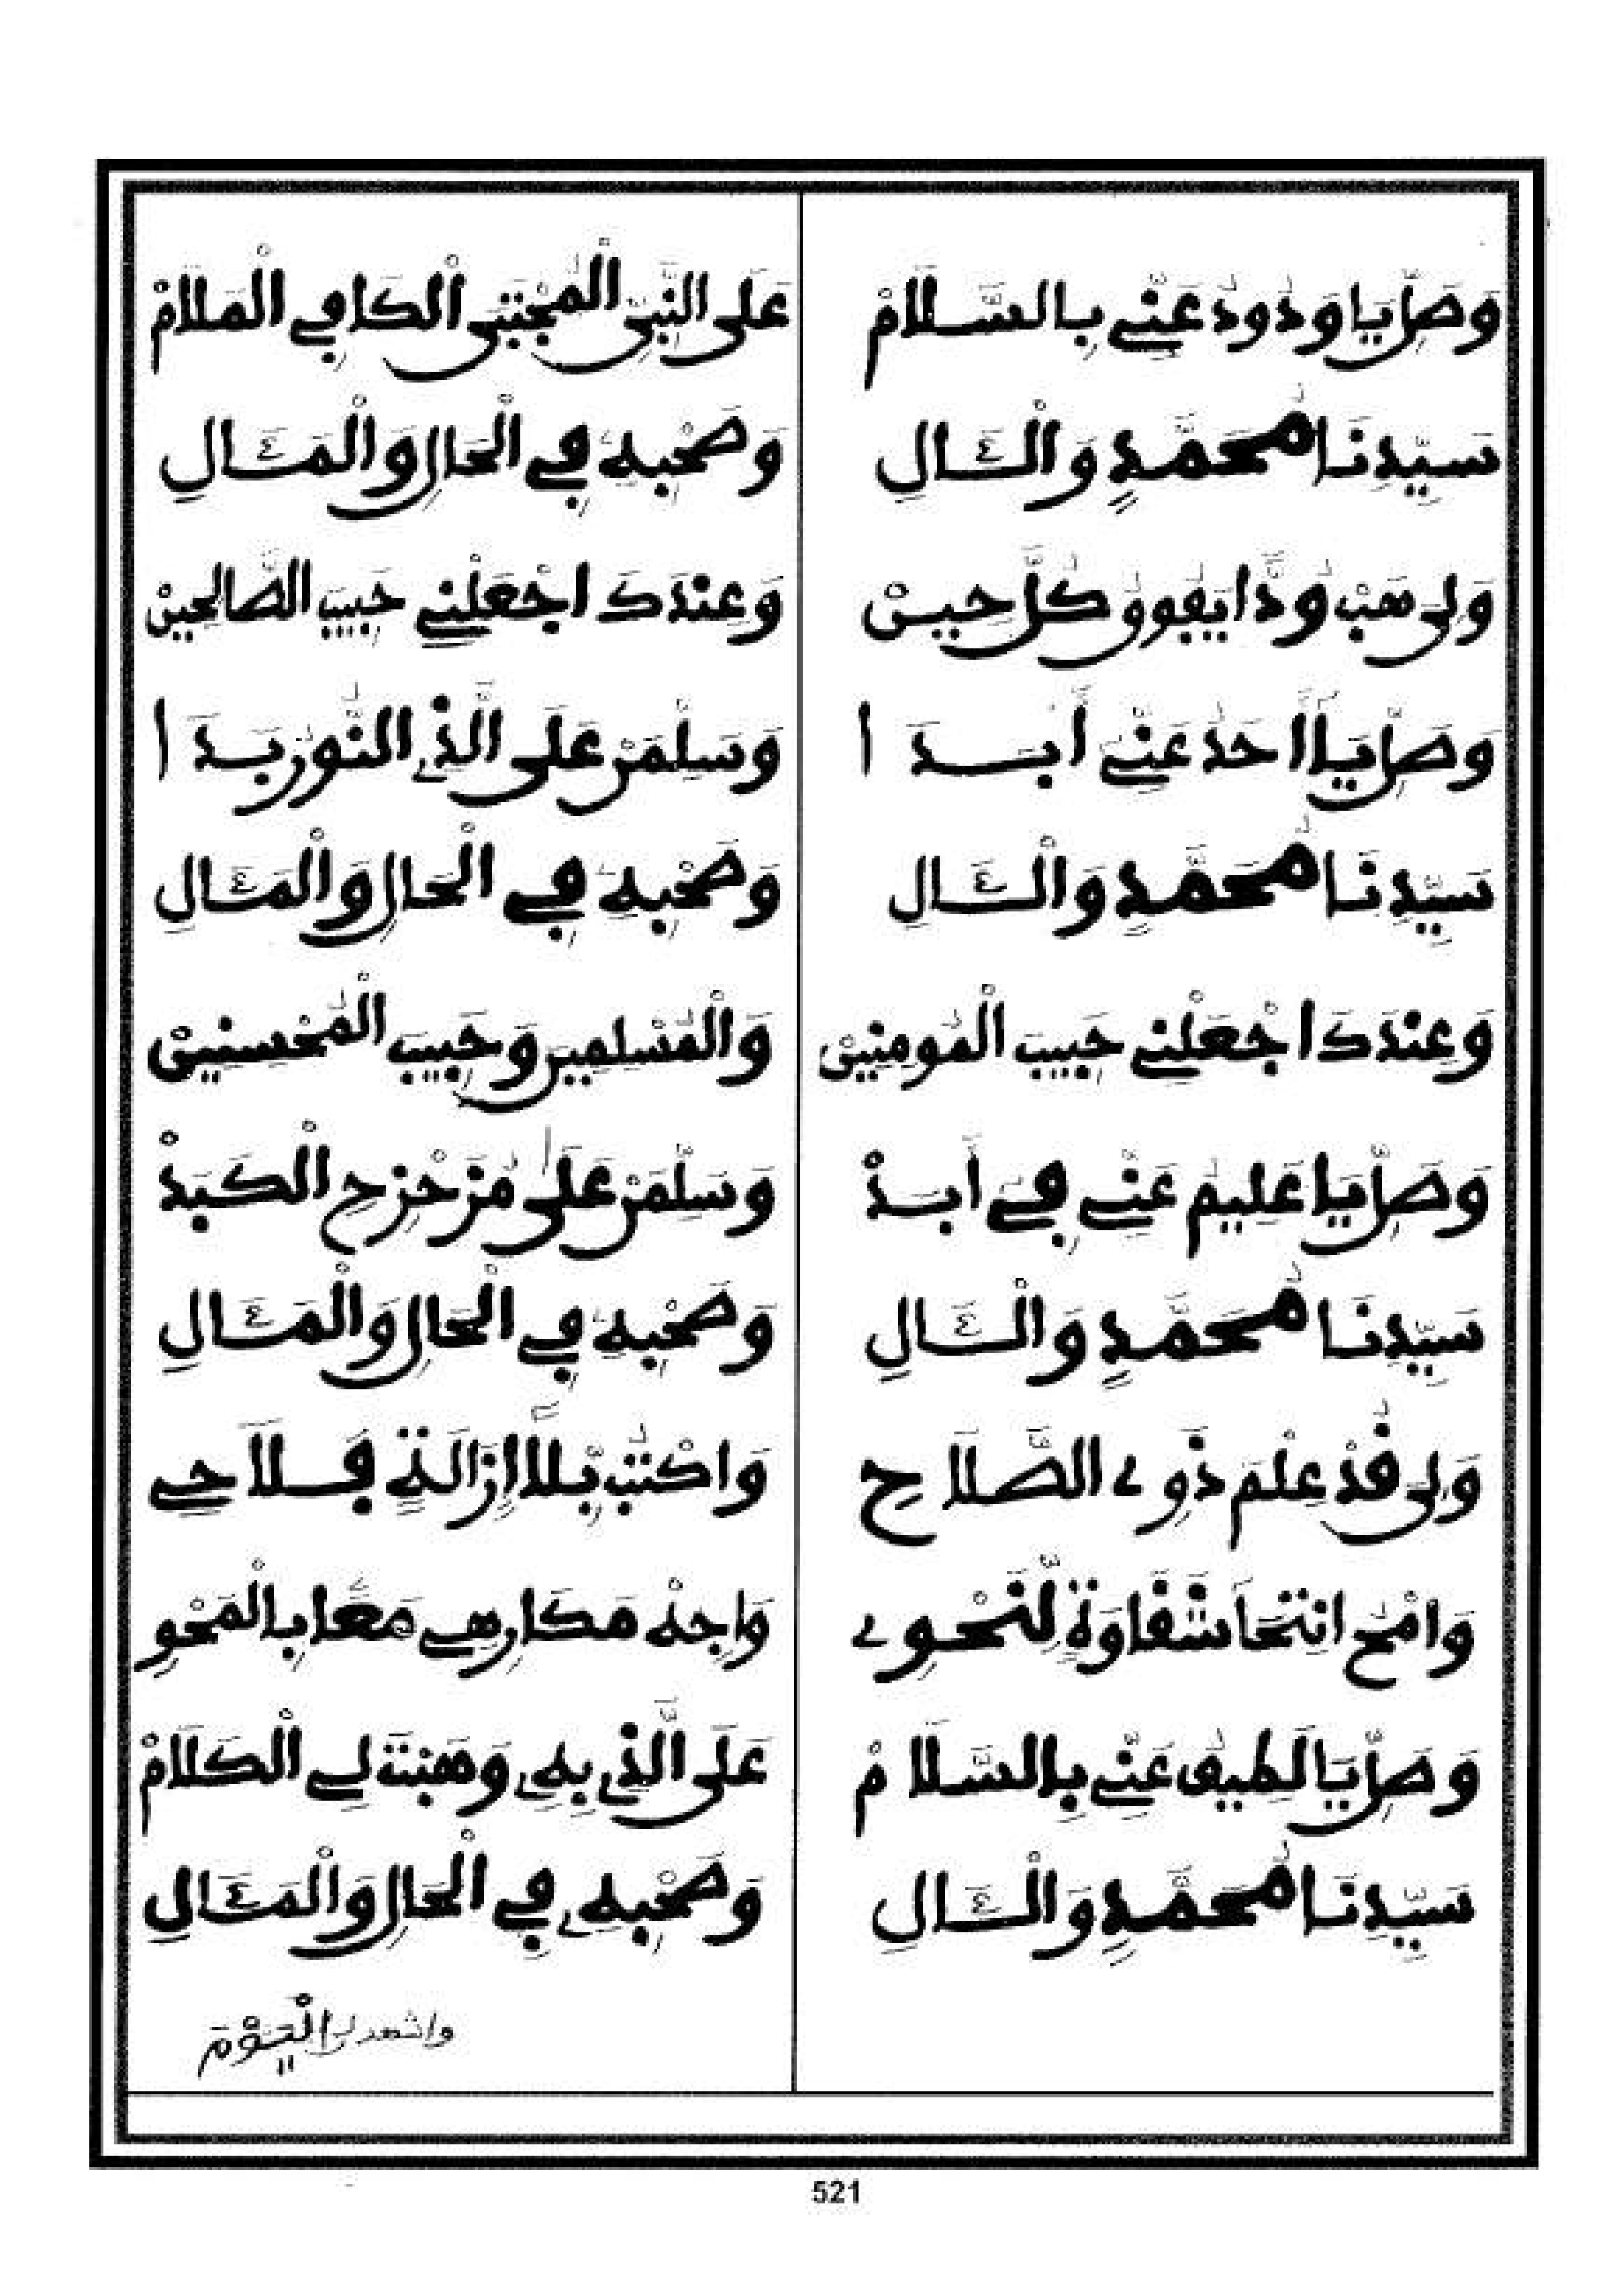 وَصَلِّ يَا وَدُودُ عَنِّي بِالسَّلَامْ عَلَى النَّبِيِّ الْمُجْتَبَى الْكَافِي الْمَلَامْ
سَيِّدِنَا مُحَمَّدٍ وَالْـَٔالِ وَصَحْبِهِ فِي الْحَالِ وَالْمَـَٔالِ
وَلِي هَبْ وُدًّا يَفُوقُ كُلَّ حِينْ وَعِنْدَكَ اجْعَلْنِي حَبِيبَ الصَّالِحِينْ
وَصَلِّ يَا أَحَدُ عَنِّي أَبَدَا وَسَلِّمَنْ عَلَى الَّذِي النُّورُ بَدَا
سَيِّدِنَا مُحَمَّدٍ وَالْـَٔالِ وَصَحْبِهِ فِي الْحَالِ وَالْمَـَٔالِ
وَعِنْدَكَ اجْعَلْنِي حَبِيبَ الْمُومِنِينْ وَالْمُسْلِمِينَ وَحَبِيبَ الْمُحْسِنِينْ
وَصَلِّ يَا عَلِيمُ عَنِّي فِي أَبَدْ وَسَلِّمَنْ عَلَى مُزَحْزِحِ الْكَبَدْ
سَيِّدِنَا مُحَمَّدٍ وَالْـَٔالِ وَصَحْبِهِ فِي الْحَالِ وَالْمَـَٔالِ
وَلِي قُدْ عِلْمَ ذَوِي الصَّلَاحِ وَاكْتُبْ بِلَا إِزَالَةٍ فَلَاحِي
وَامْحُ انْتِحَا شَقَاوَةٍ لِنَحْوِي وَاجِهْ مَكَارِهِي مَعًا بِالْمَحْوِ
وَصَلِّ يَا لَطِيفُ عَنِّي بِالسَّلَامْ عَلَى الَّذِي بِهِ وَهَبْتَ لِي الْكَلَامْ
سَيِّدِنَا مُحَمَّدٍ وَالْـَٔالِ وَصَحْبِهِ فِي الْحَالِ وَالْمَـَٔالِ
الْيَوْمَ
521